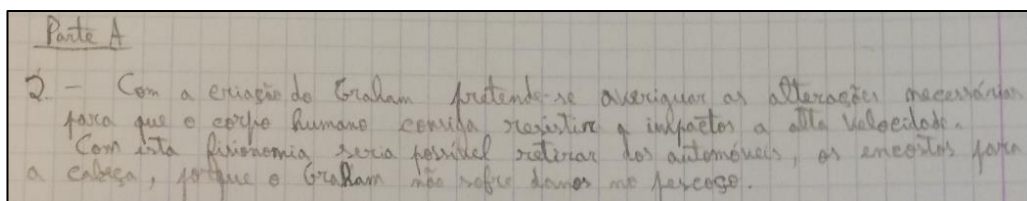 Parte A
2 - Com a criação do Graham pretende-se averiguar as alterações necessárias
para que o corpo humano consiga resistir a impactos a alta velocidade.
Com esta fisionomia seria possível retirar dos automóveis, os encostos para
a cabeça, porque o Graham não sofre danos no pescoço.